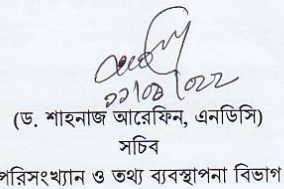 ২২/০৪/২০২২
(ড. শাহনাজ আরেফিন, এনডিসি)
সচিব
পরিসংখ্যান ও তথ্য ব্যবস্থাপনা বিভাগ